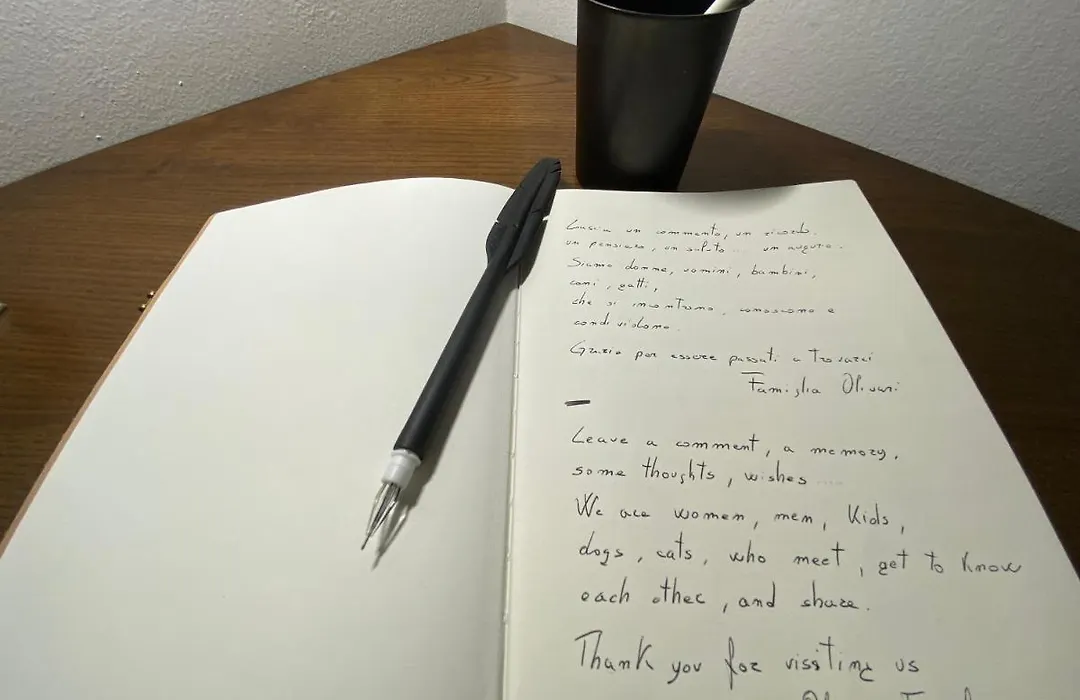 Lascia un commento, un ricordo.
un pensiero, un saluto... un augurio.
Siamo donne, uomini, bambini,
cani, gatti,
che si incontrano, conoscono e
condividono.
Grazie per essere passati a trovarci
Famiglia Olivari
Leave a comment, a memory,
some thoughts, wishes ....
We are women, men, Kids,
dogs, cats, who meet, get to know
each other, and share.
Thank you for visiting us